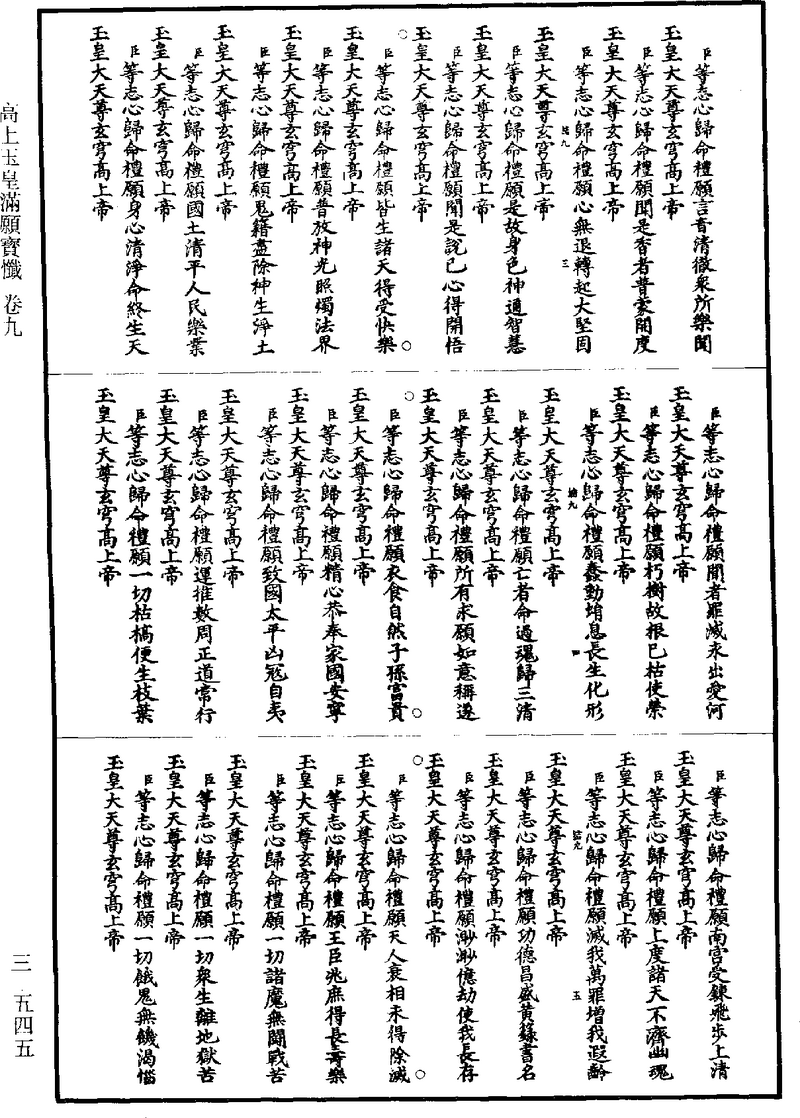 臣等志心歸命禮願言音清徹衆所樂聞
玉皇大天尊玄穹高上帝
臣等志心歸命禮願聞是香者普蒙開度
玉皇大天尊玄穹高上帝
臣等志心歸命禮願心無退轉起大堅固
玉皇大天尊玄穹高上帝
臣等志心歸命禮願是故身色神通智慧
玉皇大天尊玄穹高上帝
臣等志心歸命禮願聞是說已心得開悟
玉皇大天尊玄穹高上帝
臣等志心歸命禮願皆生諸天得受快樂
玉皇大天尊玄穹高上帝
臣等志心歸命禮願普放神光照燭法界
玉皇大天尊玄穹高上帝
臣等志心歸命禮願鬼籍盡除神生淨土
玉皇大天尊玄穹高上帝
臣等志心歸命禮願國土清平人民樂業
玉皇大天尊玄穹高上帝
臣等志心歸命禮願身心清淨命終生天
玉皇大天尊玄穹高上帝
臣等志心歸命禮願聞者罪滅永出愛河
玉皇大天尊玄穹高上帝
臣等志心歸命禮願朽樹故根已枯使榮
玉皇大天尊玄穹高上帝
臣等志心歸命禮願蠢動蛸息長生化形
玉皇大天尊玄穹高上帝
臣等志心歸命禮願亡者命過魂歸三清
玉皇大天尊玄穹高上帝
臣等志心歸命禮願所有求願如意稱遂
玉皇大天尊玄穹高上帝
臣等志心歸命禮願衣食自然子孫富貴
玉皇大天尊玄穹高上帝
臣等志心歸命禮願精心恭奉家國安寧
玉皇大天尊玄穹高上帝
臣等志心歸命禮願致國太平凶寇自夷
玉皇大天尊玄穹高上帝
臣等志心歸命禮願運推數周正道常行
玉皇大天尊玄穹高上帝
臣等志心歸命禮願一切枯槁便生枝葉
玉皇大天尊玄穹高上帝
臣等志心歸命禮願南宮受鍊飛步上清
玉皇大天尊玄穹高上帝
臣等志心歸命禮願上度諸天下濟幽魂
玉皇大天尊玄穹高上帝
臣等志心歸命禮願滅我萬罪增我遐齡
玉皇大天尊玄穹高上帝
臣等志心歸命禮願功德昌盛黃籙書名
玉皇大天尊玄穹高上帝
臣等志心歸命禮願渺渺億劫使我長存
玉皇大天尊玄穹高上帝
臣等志心歸命禮願天人衰相永得除滅
玉皇大天尊玄穹高上帝
臣等志心歸命禮願王臣兆庶得長壽樂
玉皇大天尊玄穹高上帝
臣等志心歸命禮願一切諸魔無鬪戰苦
玉皇大天尊玄穹高上帝
臣等志心歸命禮願一切衆生離地獄苦
玉皇大天尊玄穹高上帝
臣等志心歸命禮願一切餓鬼無饑渴惱
玉皇大天尊玄穹高上帝
高上玉皇滿願寶懺 卷九
三·五四五